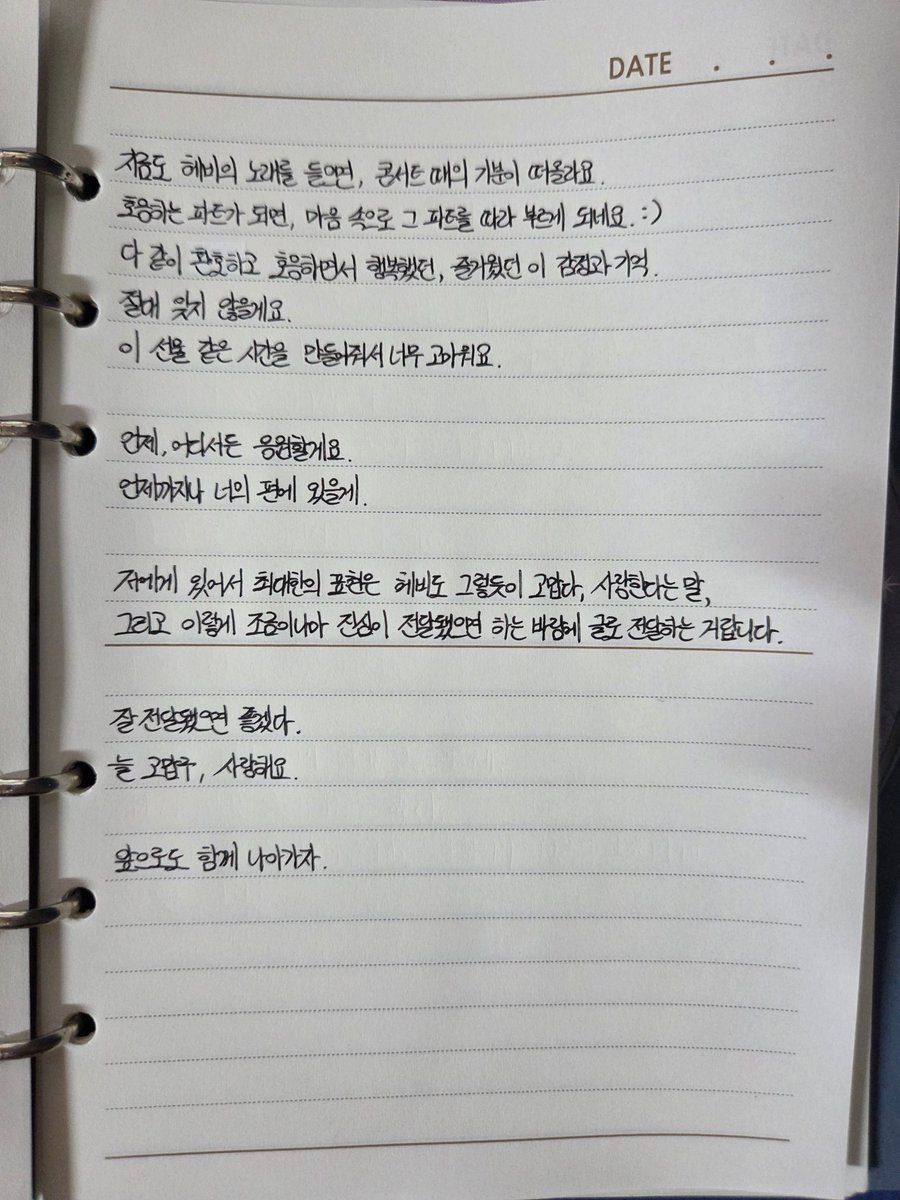 DATE . . .
지금도 헤비의 노래를 들으면, 콘서트 때의 기분이 떠올라요.
호응하는 파트가 되면, 마음 속으로 그 파트를 따라 부르게 되네요. :)
다 같이 환호하고 호응하면서 행복했던, 즐거웠던 이 감정과 기억.
절대 잊지 않을게요.
이 선물 같은 시간을 만들어줘서 너무 고마워요.
언제, 어디서든 응원할게요.
언제까지나 너의 편에 있을게.
저에게 있어서 최대한의 표현은 헤비도 그렇듯이 고맙다, 사랑한다는 말,
그리고 이렇게 조금이나마 진심이 전달됐으면 하는 바람에 글로 전달하는 거랍니다.
잘 전달됐으면 좋겠다.
늘 고맙구, 사랑해요.
앞으로도 함께 나아가자.